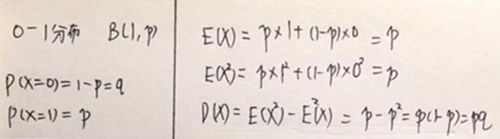 0-1分布 B(1,p)
P(X=0)=1-p=q
P(X=1)=p
E(X)=p×1+(1-p)×0=p
E(X²)=p×1²+(1-p)×0²=p
D(X)=E(X²)-E²(X)=p-p²=p(1-p)=pq